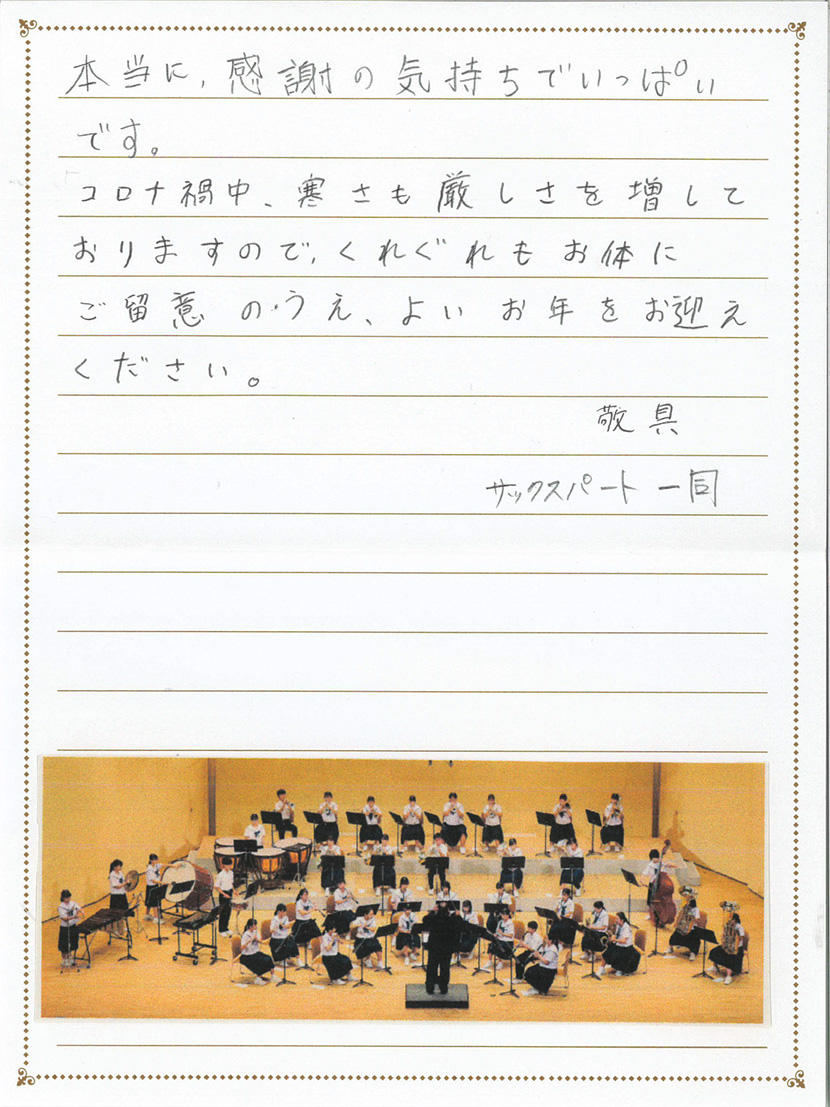 本当に,感謝の気持ちでいっぱい
です。
コロナ禍中、寒さも厳しさを増して
おりますので,くれぐれもお体に
ご留意のうえ、よいお年をお迎え
ください。
敬具
サックスパート一同